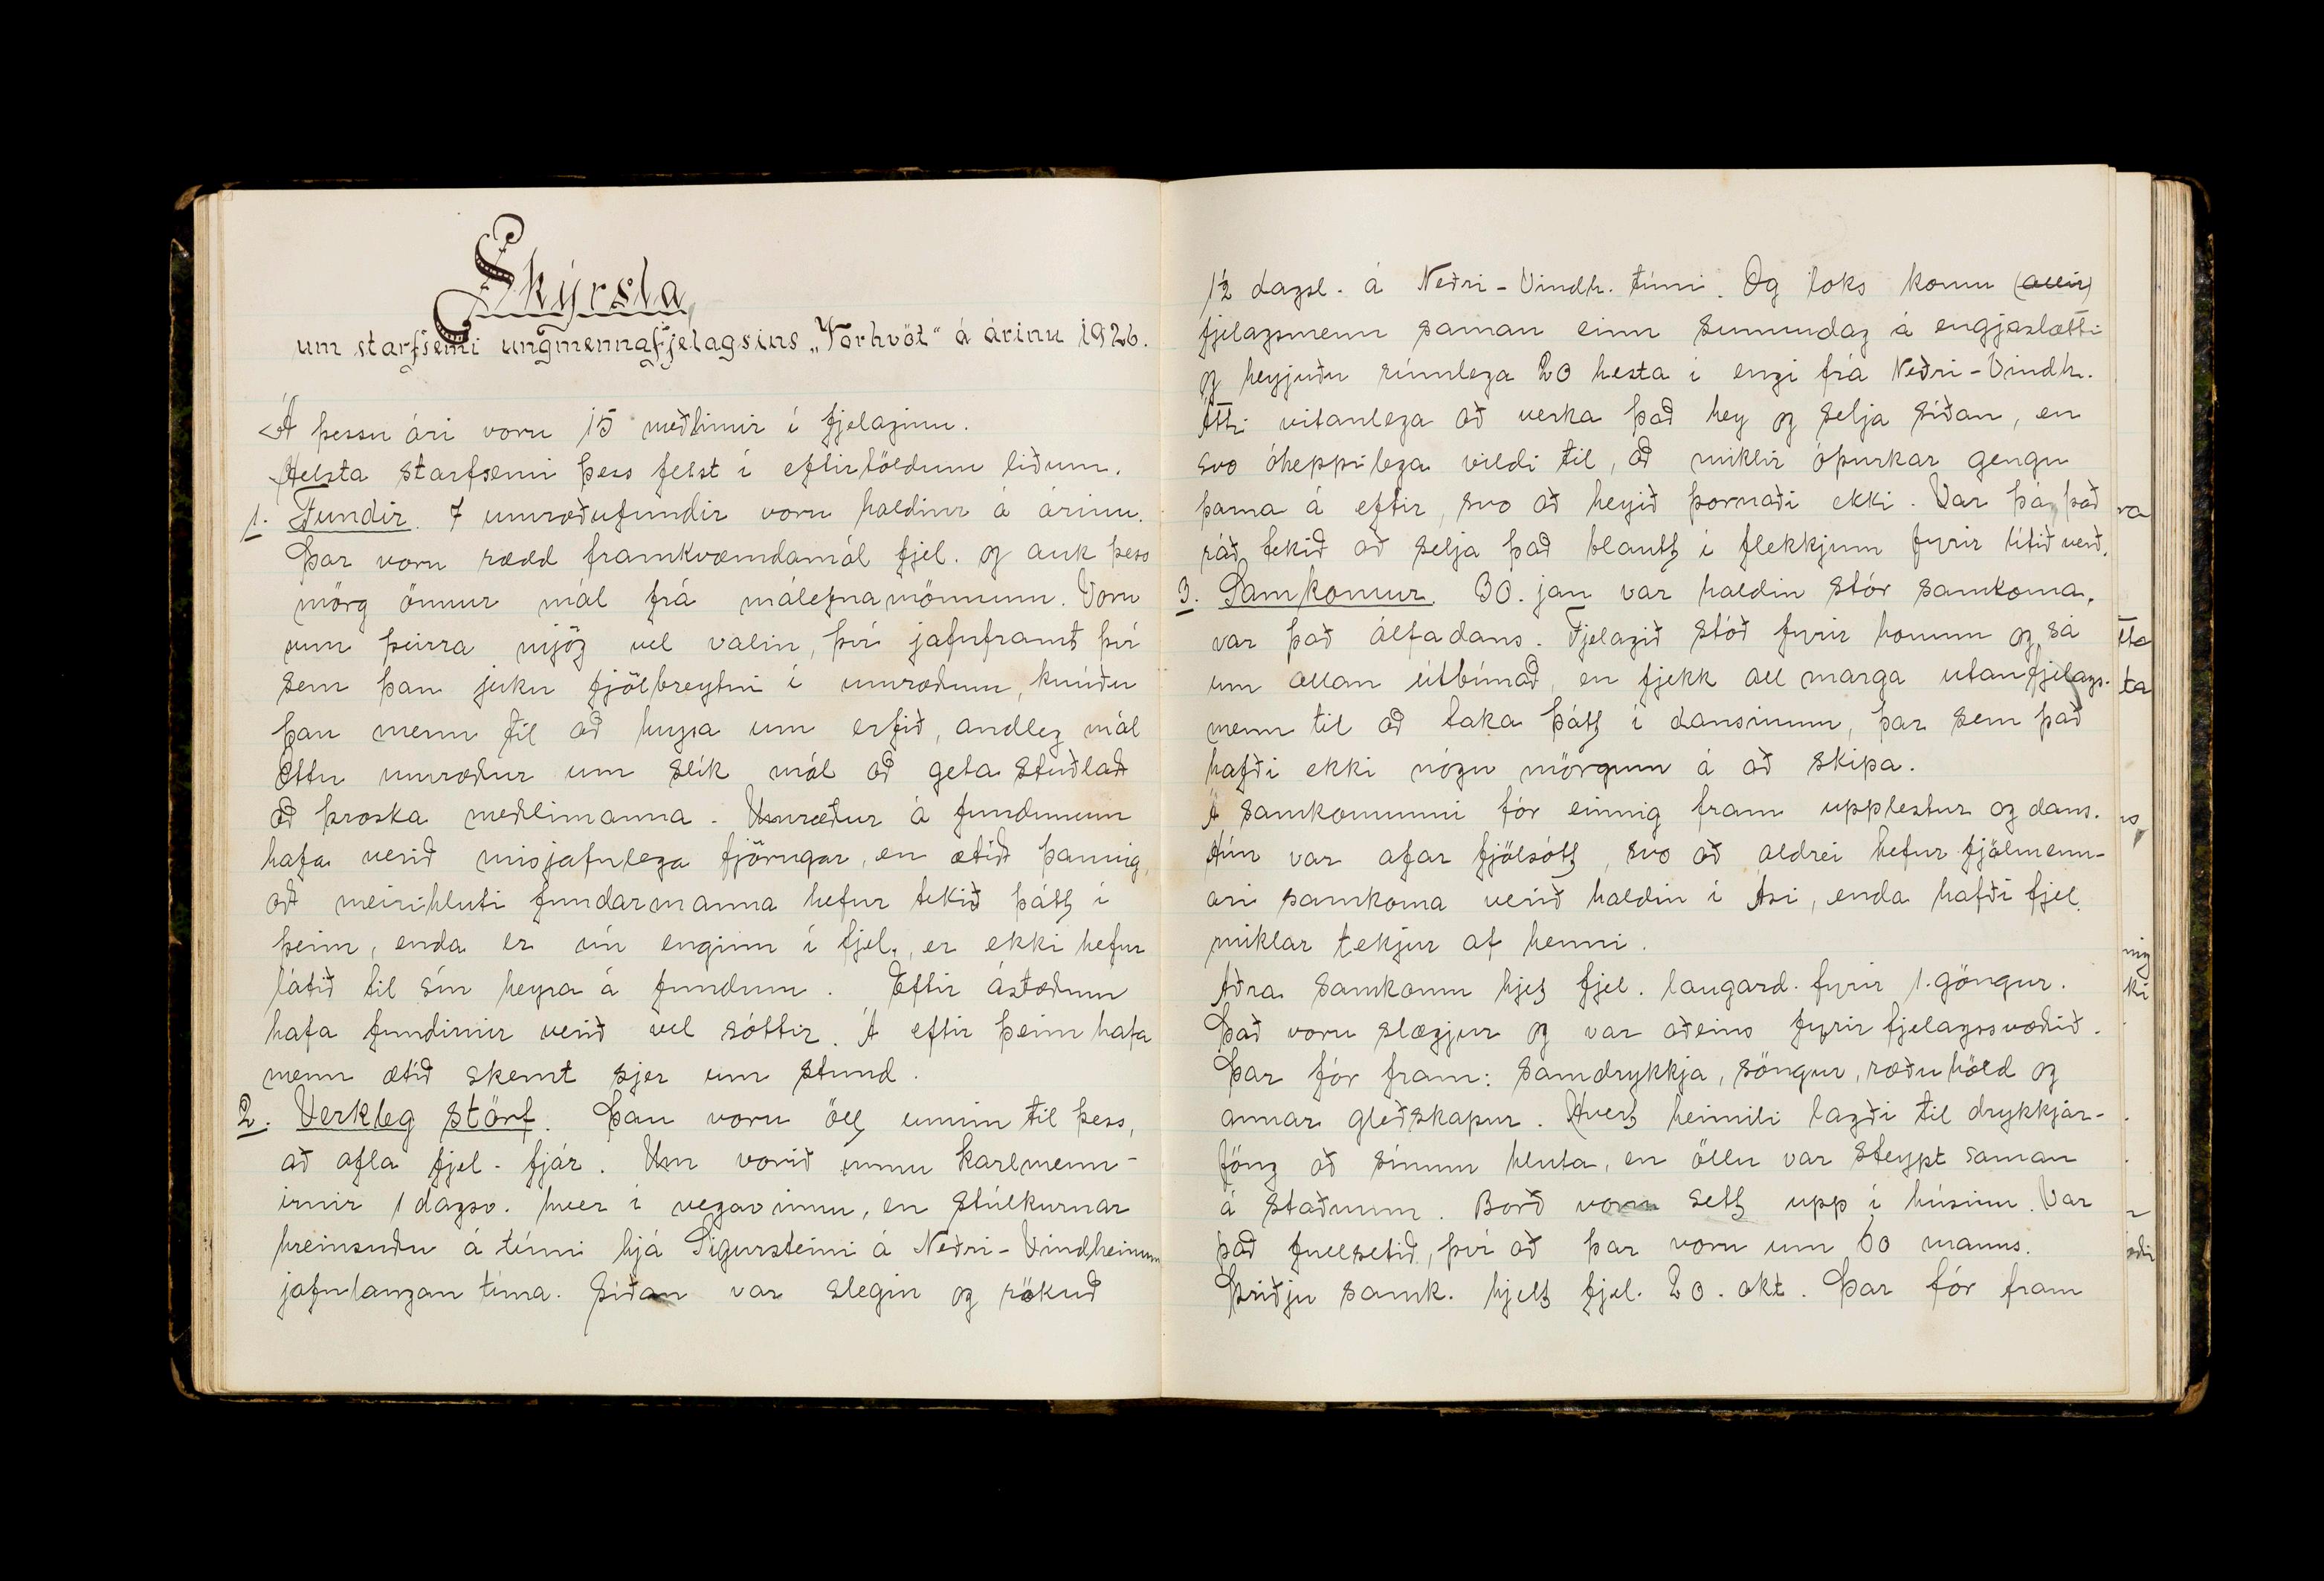 Skýrsla
um starfsemi ungmennafjelagsins „Vorhvöt“ á árinu 1926.
Á þessu ári voru 15 meðlimir í fjelaginu.
Helsta starfsemi þess felst í eftirtöldum liðum.
1. Fundir. 7 umræðufundir voru haldnir á árinu.
Þar voru rædd framkvæmdamál fjel. og auk þess
mörg önnur mál frá málefnamönnum. Voru
sum þeirra mjög vel valin, því jafnframt því
sem þau juku fjölbreytni í umræðum, knúðu
þau menn til að hugsa um erfið, andleg mál
Ættu umræður um slík mál að geta stuðlað
að þroska meðlimanna. Umræður á fundunum
hafa verið misjafnlega fjörugar, en ætíð þannig,
að meirihluti fundarmanna hefur tekið þátt í
þeim, enda er nú enginn í fjel., er ekki hefur
látið til sín heyra á fundum. Eftir ástæðum
hafa fundirnir verið vel sóttir. Á eftir þeim hafa
menn ætíð skemt sjer um stund.
2. Verkleg störf. Þau voru öll unnin til þess,
að afla fjel. fjár. Um vorið unnu karlmenn-
irnir 1 dagsv. hver í vegavinnu, en stúlkurnar
hreinsuðu á túni hjá Sigursteini á Neðri-Vindheimum
jafnlangan tíma. Síðan var slegin og rökuð
1½ dagsl. á Neðri-Vindh. túni. Og loks komu (allir)
fjelagsmenn saman einn sunnudag á engjaslætti
og heyjuðu rúmlega 20 hesta í engi frá Neðri-Vindh.
Átti vitanlega að verka það hey og selja síðan, en
svo óheppilega vildi til, að miklir óþurkar gengu
þarna á eftir, svo að heyið þornaði ekki. Var þá það
ráð tekið að selja það blautt í flekkjum fyrir lítið verð.
3. Samkomur. 30. jan var haldin stór samkoma,
var það álfadans. Fjelagið stóð fyrir honum og sá
um allan útbúnað, en fjekk all marga utanfjelags-
menn til að taka þátt í dansinum, þar sem það
hafði ekki nógu mörgum á að skipa.
Á samkomunni fór einnig fram upplestur og dans.
Hún var afar fjölsótt, svo að aldrei hefur fjölmenn-
ari samkoma verið haldin í Ási, enda hafði fjel.
miklar tekjur af henni.
Aðra samkomu hjelt fjel. laugard. fyrir 1. göngur.
Það voru slægjur og var aðeins fyrir fjelagssvæðið.
Þar fór fram: Samdrykkja, söngur, ræðuhöld og
annar gleðskapur. Hvert heimili lagði til drykkjar-
föng að sínum hluta, en öllu var steypt saman
á staðnum. Borð voru sett upp í húsinu. Var
það fullsetið, því að þar voru um 60 manns.
Þriðju samk. hjelt fjel. 20. okt. Þar fór fram